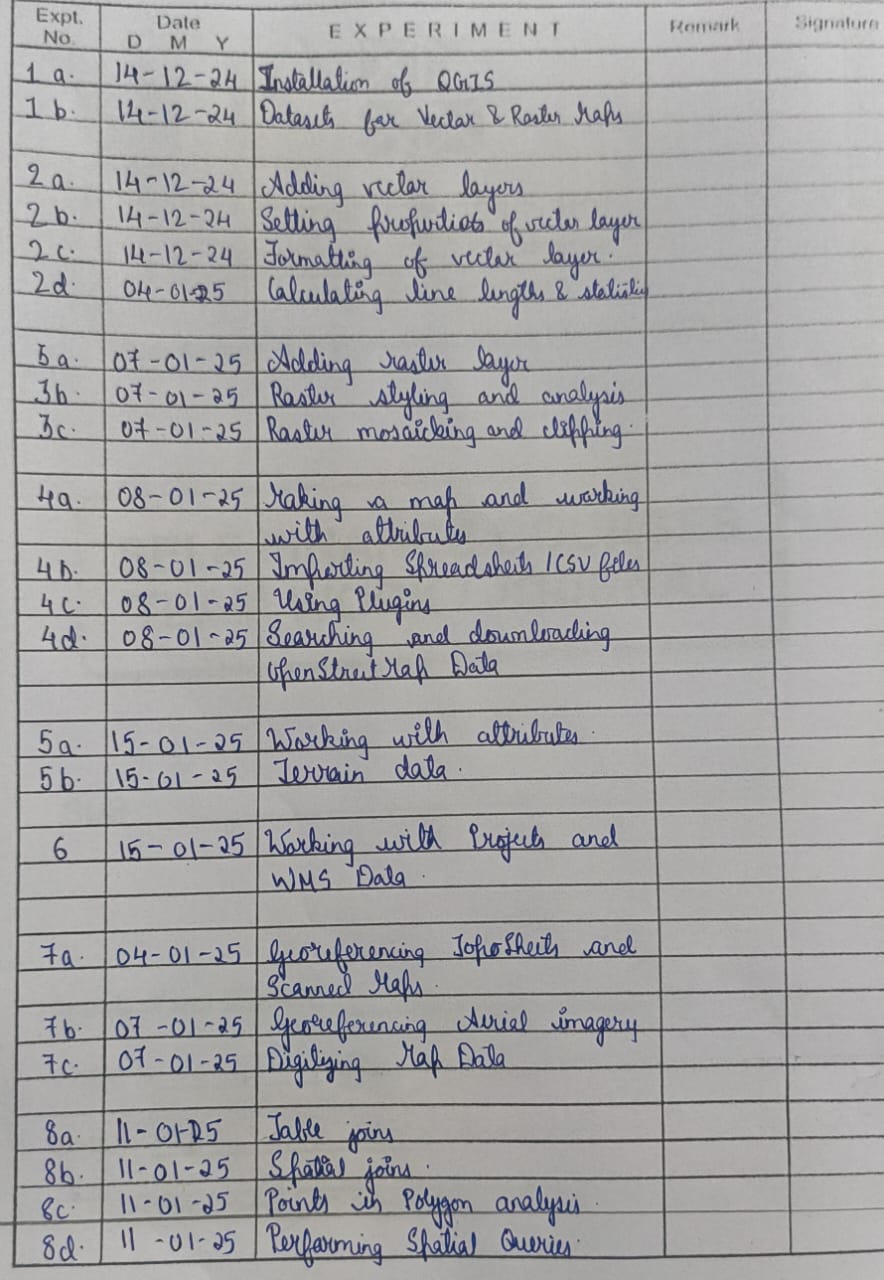 Expt. No. Date D M Y EXPERIMENT Remark Signature
1a. 14-12-24 Installation of QGIS
1b. 14-12-24 Datasets for Vector & Raster Maps
2a. 14-12-24 Adding vector layers
2b. 14-12-24 Setting properties of vector layer
2c. 14-12-24 Formatting of vector layer.
2d. 04-01-25 Calculating line lengths & statistics
3a. 07-01-25 Adding raster layer
3b. 07-01-25 Raster styling and analysis
3c. 07-01-25 Raster mosaicking and clipping.
4a. 08-01-25 Making a map and working
with attributes
4b. 08-01-25 Importing Spreadsheets / CSV files
4c. 08-01-25 Using Plugins
4d. 08-01-25 Searching and downloading
OpenStreetMap Data
5a. 15-01-25 Working with attributes.
5b. 15-01-25 Terrain data.
6 15-01-25 Working with Projects and
WMS Data.
7a. 04-01-25 Georeferencing TopoSheets and
Scanned Maps.
7b. 07-01-25 Georeferencing Aerial imagery
7c. 07-01-25 Digitizing Map Data
8a. 11-01-25 Table joins
8b. 11-01-25 Spatial joins.
8c. 11-01-25 Points in Polygon analysis.
8d. 11-01-25 Performing Spatial Queries.